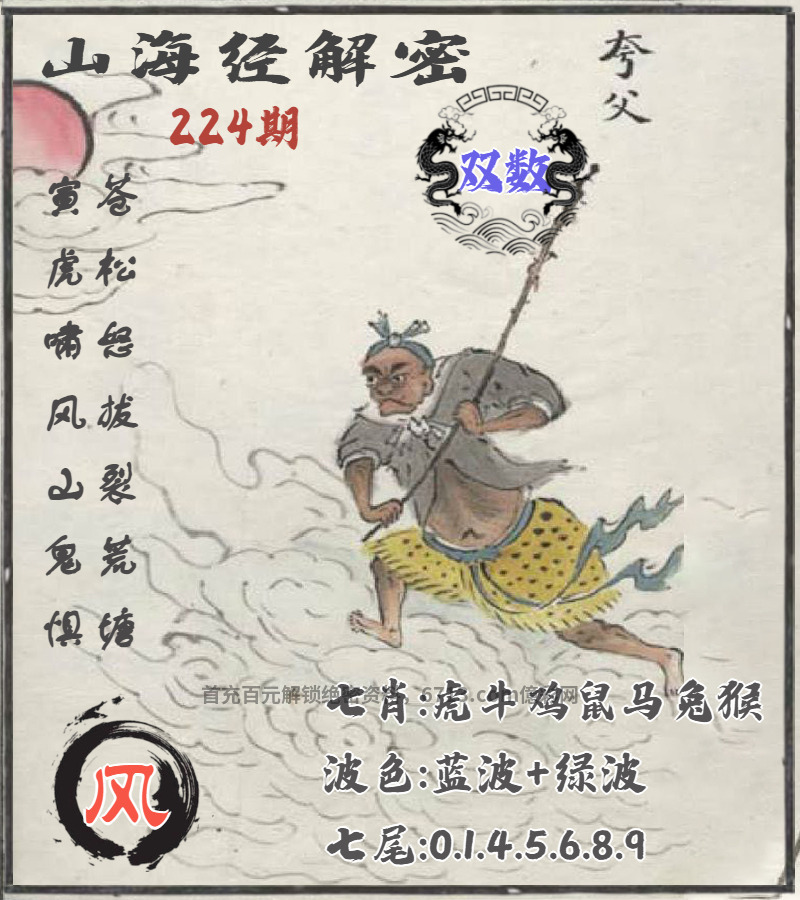 山海经解密
224期
夸父
双数
苍松怒拔裂荒塘
寅虎啸风山鬼惧
风
首充百元解锁绝密资料
七肖:虎牛鸡鼠马兔猴
波色:蓝波+绿波
七尾:0.1.4.5.6.8.9